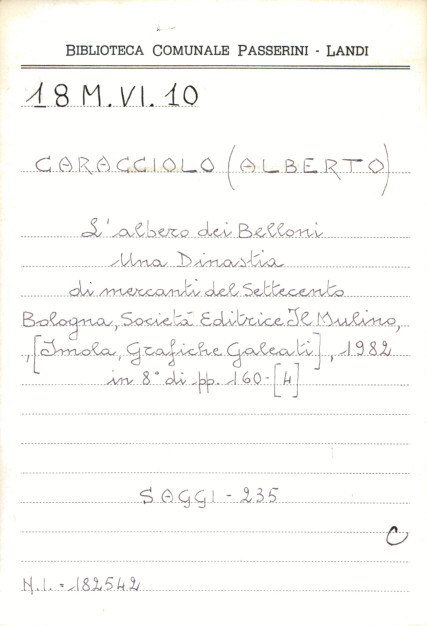 BIBLIOTECA COMUNALE PASSERINI - LANDI
18 M. VI. 10
CARACCIOLO (ALBERTO)
L'albero dei Belloni
Una Dinastia
di mercanti del Settecento
Bologna, Società Editrice Il Mulino,
, [Imola, Grafiche Galeati], 1982
in 8° di pp. 160-[4]
SAGGI - 235
C
N.I. = 182542